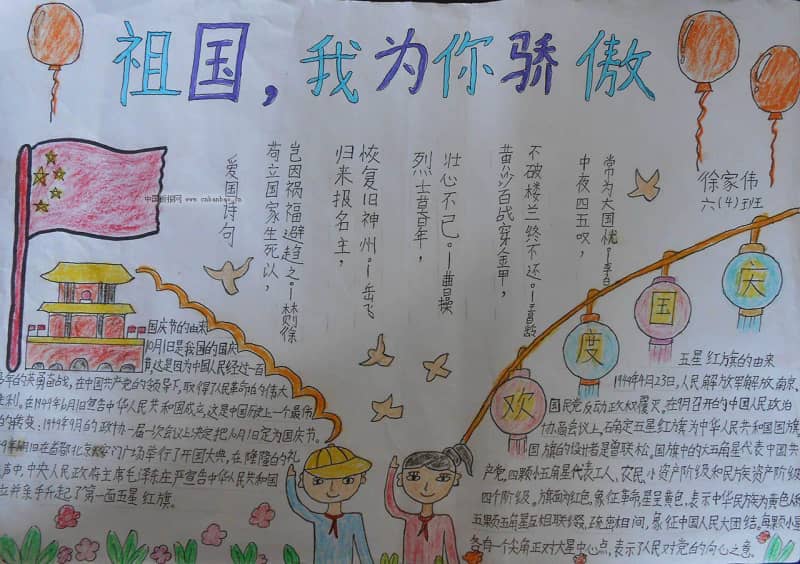 祖国，我为你骄傲
徐家伟
六(4)班
爱国诗句
苟立国家生死以，
岂因祸福避趋之。—林则徐
归来报名主，
恢复旧神州。—岳飞
烈士暮年，
壮心不已。—曹操
黄沙百战穿金甲，
不破楼兰终不还。—王昌龄
中夜四五叹，
常为大国忧。—李白
欢度国庆
国庆节的由来
10月1日是我国的国庆
节,这是因为中国人民经过一百
多年的英勇奋战，在中国共产党的领导下,取得了人民革命的伟大
胜利。在1949年10月1日宣告中华人民共和国成立,这是中国历史上一个最伟
的转变；1949年9月的政协一届一次会议上决定把10月1日定为国庆节。
月1日在首都北京天安门广场举行了开国大典，在隆隆的礼
声中,中央人民政府主席毛泽东庄严宣告中华人民共和国
并亲手升起了第一面五星红旗。
五星红旗的由来
1949年4月23日,人民解放军解放南京,
国民党反动政权覆灭。在9月召开的中国人民政治
协商会议上,确定五星红旗为中华人民共和国国旗,
国旗的设计者是曾联松。国旗中的大五角星代表中国共
产党,四颗小五角星代表工人、农民,小资产阶级和民族资产阶级
四个阶级。旗面为红色,象征革命,星呈黄色,表示中华民族为黄色
五颗五角星互相联缀,疏密相间,象征中国人民大团结,每颗小星
各有一个尖角正对大星中心点,表示了人民对党的向心之意。